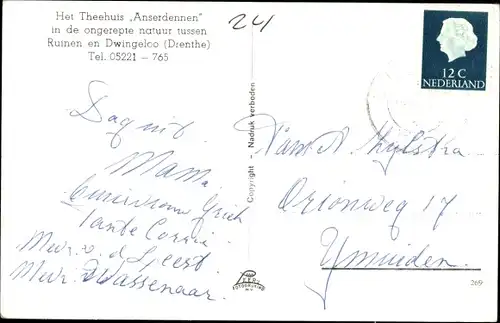 Het Theehuis „Anserdennen"
in de ongerepte natuur tussen
Ruinen en Dwingeloo (Drenthe)
Tel. 05221 — 765
24
12 C
NEDERLAND
Dag uit.
Mama
Tante Corrie
Mevr. v. d. Speest
Mevr. Wassenaar.
Copyright - Nadruk verboden
Fam. A. Zylstra
Orionweg 17
Ymuiden.
269